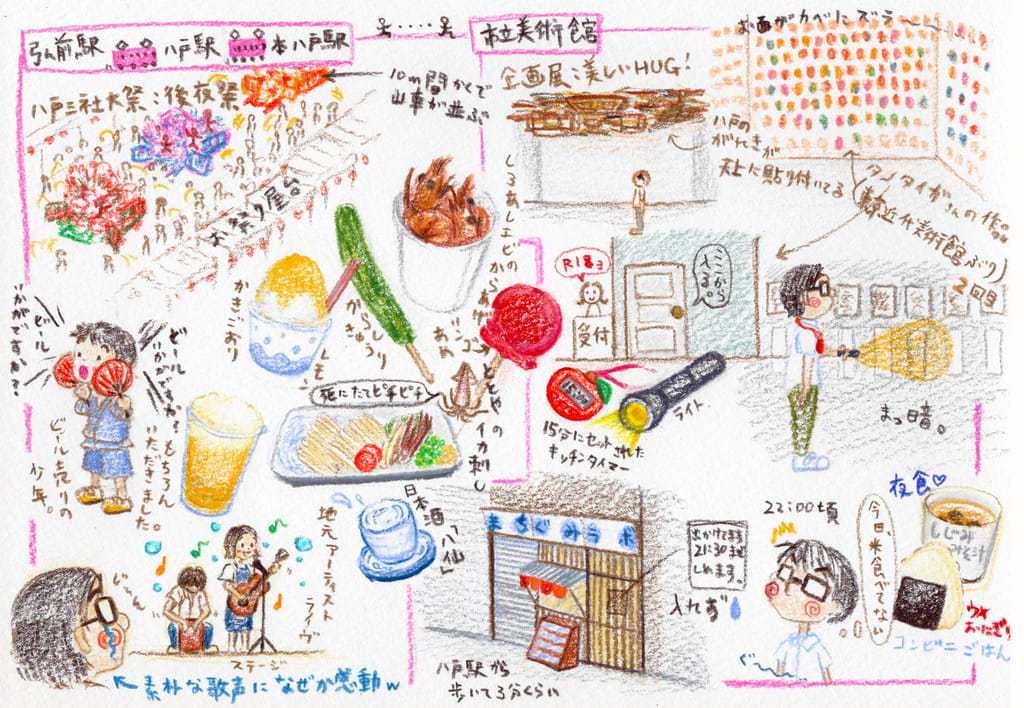 弘前駅 八戸駅 本八戸駅
八戸三社大祭：後夜祭
10m間かくで
山車が並ぶ
お祭り屋台
しろあしエビの
からあげ
かきごおり
レモン
からし
きゅうり
りんご
あめ
ビール
いかがですか?
ビール
いかがですか?
もちろん
いただきました。
ビール売りの
少年。
死にたてピチピチ
ととやの
イカ刺し
日本酒「八仙」
地元アーティスト
ライヴ
じーん
ステージ
素朴な歌声になぜか感動w
市立美術館
企画展:美しいHUG!
お面がカベにズラ〜〜
八戸の
がれきが
天上に貼り付いてる
タノタイガさんの作品
(青森近代美術館ぶり)
2回目
R18ョ
受付
ここから
入るべし
15分にセットされた
キッチンタイマー
ライト
まっ暗。
まちぐみラボ
出かけてます
21:30まで
しめます。
入れず
八戸駅から
歩いて3分くらい
22:00頃
今日、米食べてない
ぐ〜
夜食♡
しじみ
みそ汁
おにぎり
コンビニごはん